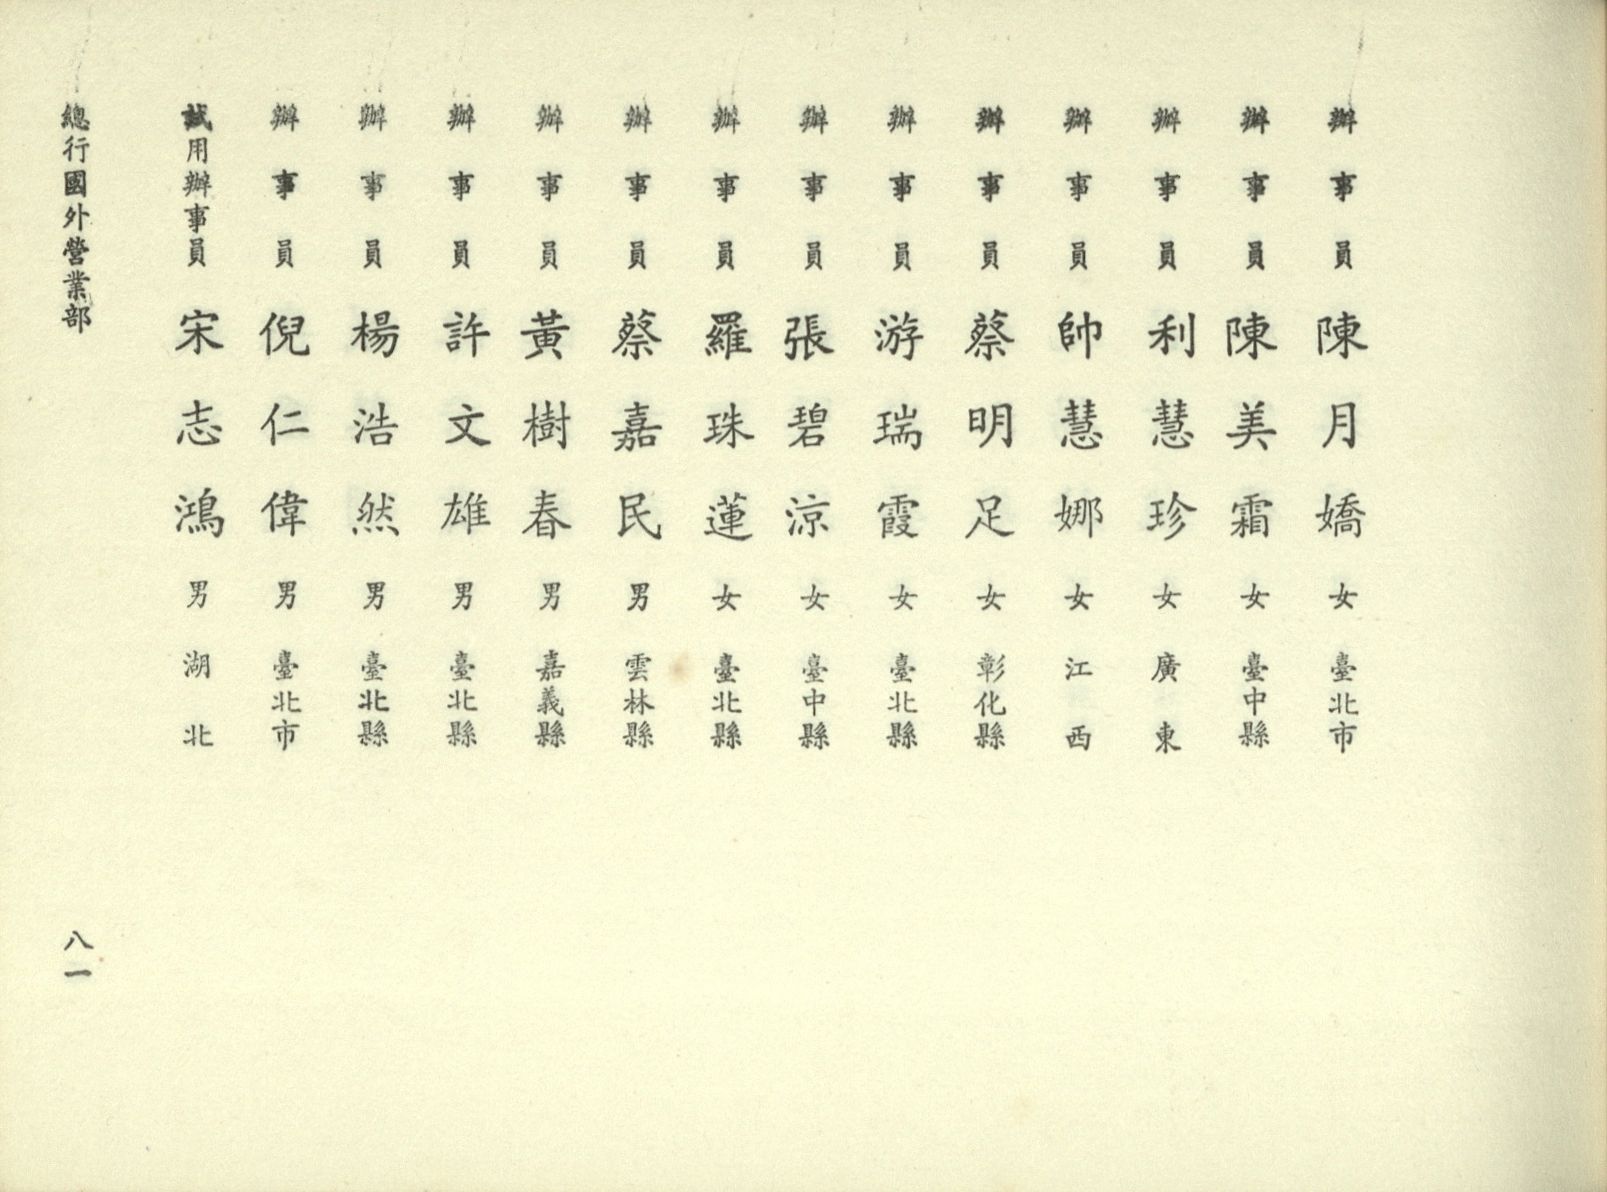 辦事員 陳月嬌 女 臺北市
辦事員 陳美霜 女 臺中縣
辦事員 利慧珍 女 廣東
辦事員 帥慧娜 女 江西
辦事員 蔡明足 女 彰化縣
辦事員 游瑞霞 女 臺北縣
辦事員 張碧涼 女 臺中縣
辦事員 羅珠蓮 女 臺北縣
辦事員 蔡嘉民 男 雲林縣
辦事員 黃樹春 男 嘉義縣
辦事員 許文雄 男 臺北縣
辦事員 楊浩然 男 臺北縣
辦事員 倪仁偉 男 臺北市
試用辦事員 宋志鴻 男 湖北
總行國外營業部
八一